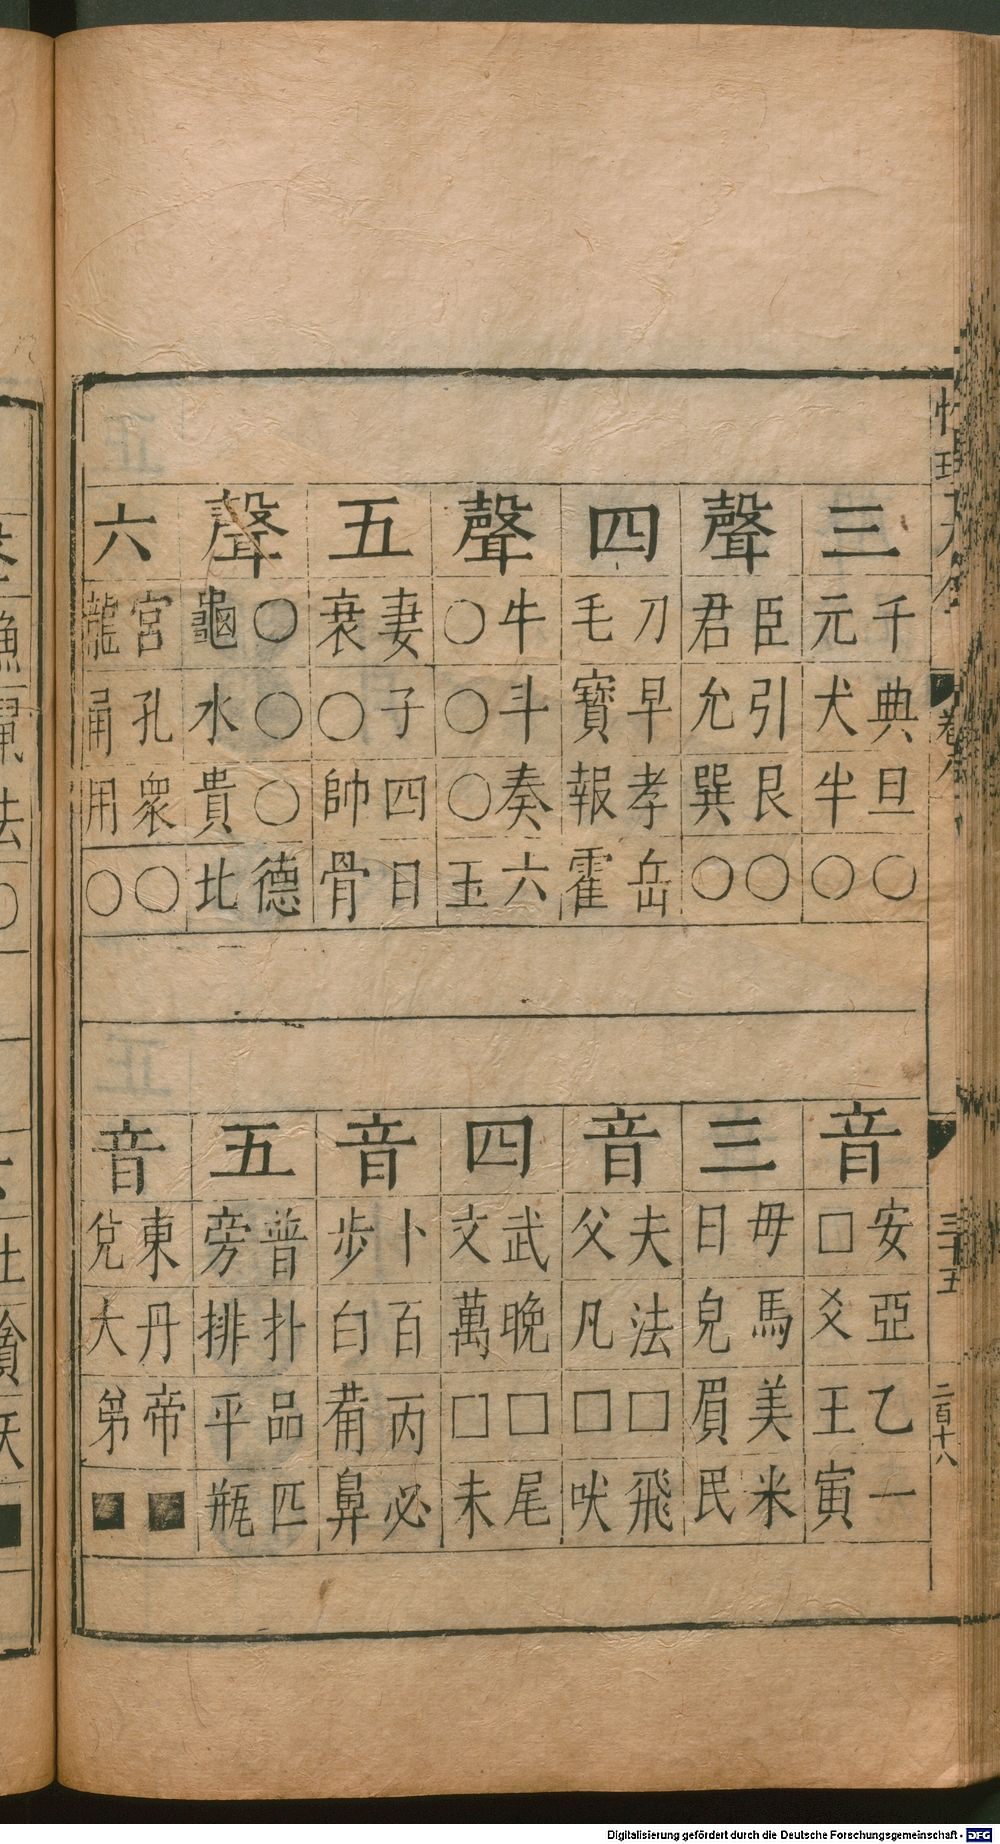 三聲四聲五聲六
千典旦〇
元犬半〇
臣引艮〇
君允巽〇
刀早孝岳
毛寶報霍
牛斗奏六
〇〇〇玉
妻子四日
衰〇帥骨
〇〇〇德
龜水貴北
宮孔衆〇
龍甬用〇
音三音四音五音
安亞乙一
□爻王寅
母馬美米
目皃眉民
夫法□飛
父凡□吠
武晚□尾
文萬□未
卜百丙必
步白葡鼻
普扑品匹
旁排平瓶
東丹帝■
兌大弟■
卷
三十五
二百十八
Digitalisierung gefördert durch die Deutsche Forschungsgemeinschaft - DFG